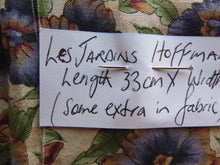 Les JARDINS HOFFMAN
Length 33cm X Width
(Some extra in fabric